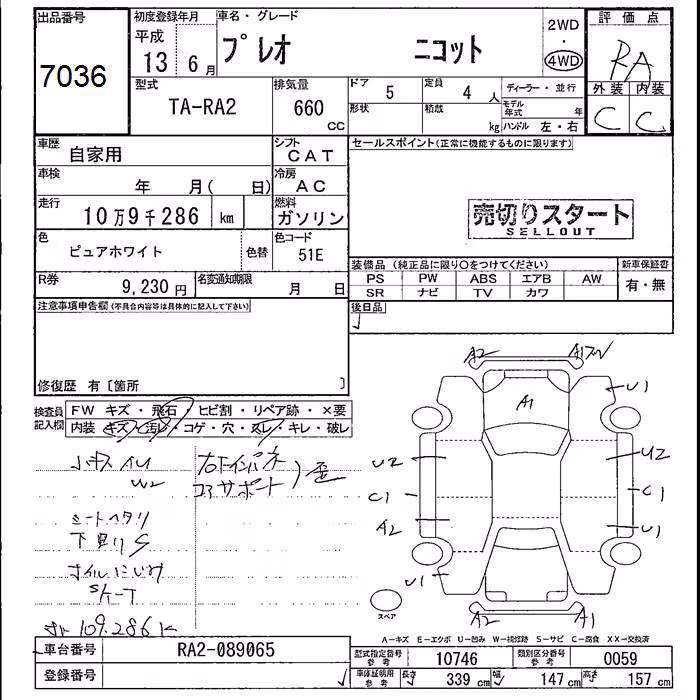 出品番号 初度登録年月 車名・グレード 2WD 評価点
平成 ・
7036 13 6月 プレオ ニコット 4WD RA
型式 排気量 ドア 5 定員 4人 ディーラー・並行 外装 内装
TA-RA2 660 CC 形状 積載 kg モデル年式 年 C C
ハンドル 左・右
車歴 自家用 シフト CAT セールスポイント(正常に機能するものに限ります)
車検 年 月( 日) 冷房 AC
走行 10万9千286 km 燃料 ガソリン 売切りスタート
SELLOUT
色 ピュアホワイト 色替 色コード 51E
装備品 (純正品に限り○をつけてください) 新車保証書
R券 9,230円 名変通知期限 月 日 PS PW ABS エアB AW 有・無
SR ナビ TV カワ
注意事項申告欄(不具合内容等は具体的に記入して下さい) 後日品
修復歴 有〔箇所 〕
検査員記入欄 FW キズ・飛石・ヒビ割・リペア跡・×要
内装 キズ・汚レ・コゲ・穴・スレ・キレ・破レ
小キズ イル 右下インパネ
W2 コアサポート ) 歪
シートヘタリ
下回りS
オイルにじみ
Sケート
109.286K
A2 A1
A1
U1
U2 U2
C1 C1
A2 U1
U1
A2 A1
スペア
A-キズ E-エクボ U-凹み W-補修跡 S-サビ C-腐食 XX-交換済
車台番号 RA2-089065 型式指定番号 参考 10746 類別区分番号 参考 0059
登録番号 車庫証明用 参考 長さ 339 cm 幅 147 cm 高さ 157 cm